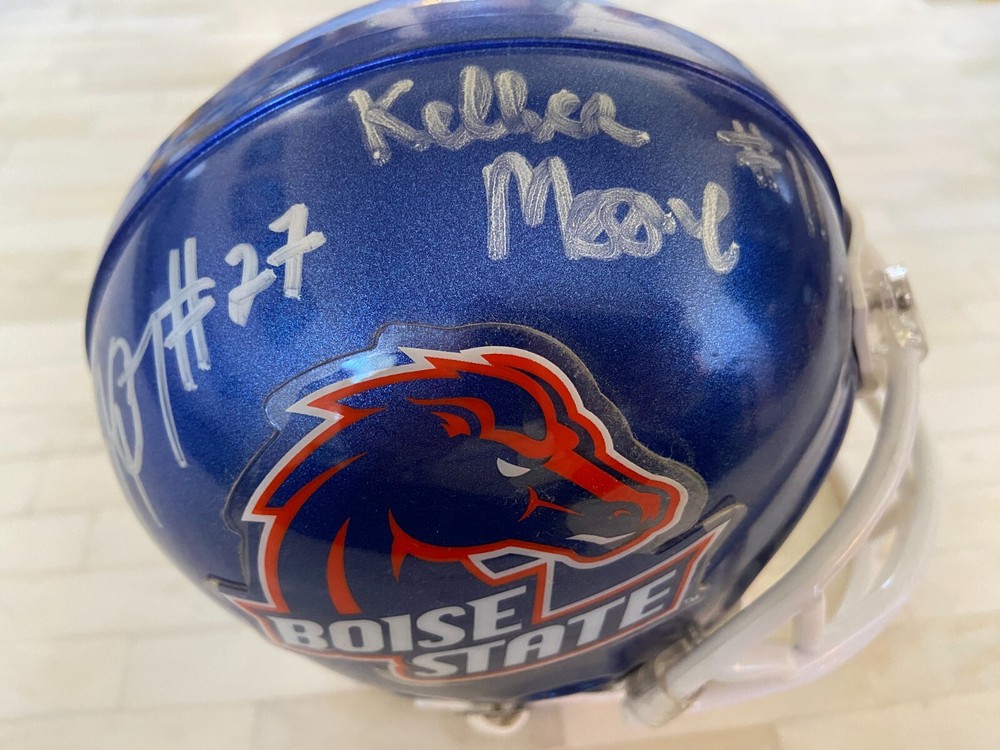 Kellen
Moore
#11
#27
BOISE
STATE
TM